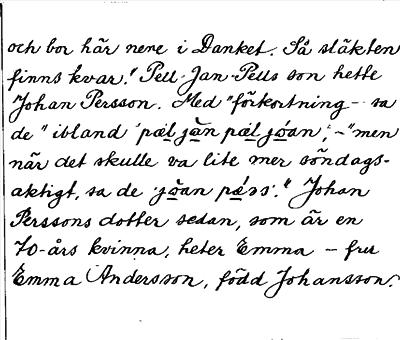 och bor här nere i Danket. Så släkten
finns kvar." Pell-Jan-Pells son hette
Johan Persson. Med "förkortning – sa
de" ibland 'pæl jän pæl jóan,' – "men
när det skulle va lite mer söndags-
aktigt, sa de 'jöan pǽɔs'." Johan
Perssons dotter sedan, som är en
70-års kvinna, heter Emma – fru
Emma Andersson, född Johansson.